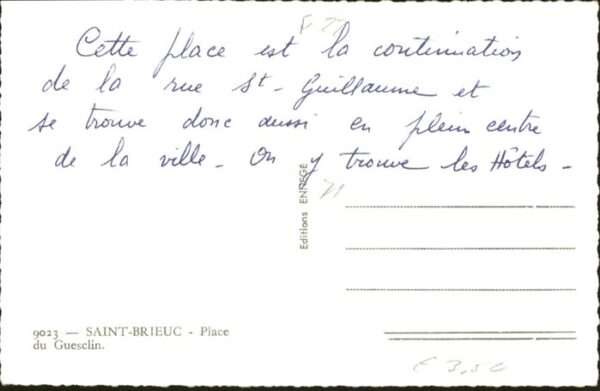 F 71
Cette place est la continuation
de la rue St-Guillaume et
se trouve donc aussi en plein centre
de la ville - On y trouve les Hôtels -
71
Editions ENREGE
9023 — SAINT-BRIEUC - Place
du Guesclin.